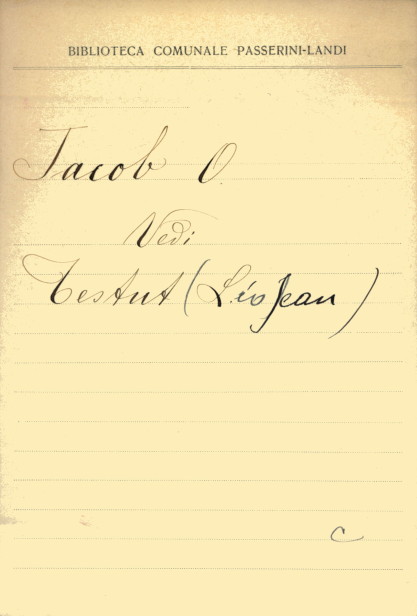 BIBLIOTECA COMUNALE PASSERINI-LANDI
Jacob O.
Vedi
Testut (Léo Jean)
C